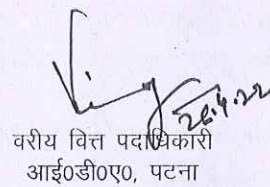 26.4.22
वरीय वित्त पदाधिकारी
आई0डी0ए0, पटना